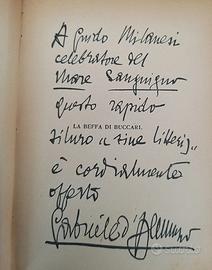 A Guido Milanesi
celebratore del
Mare Sanguigno
questo rapido
LA BEFFA DI BUCCARI.
siluro "sine litteris"
è cordialmente
offerto
Gabriele d'Annunzio